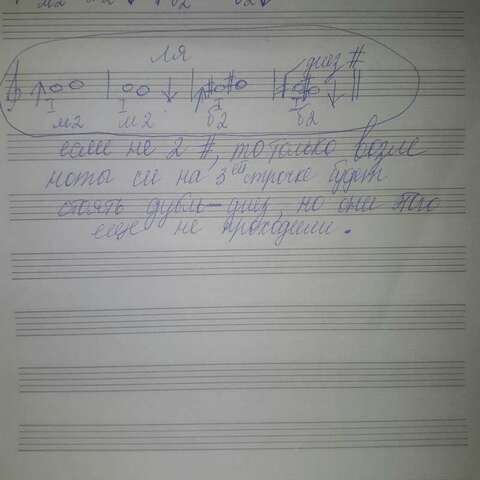 м2 ↓ ↑ б2 б2 ↓
ЛЯ
диез #
I I I I
м2 м2 б2 б2
если не 2 #, то только возле
ноты си на 3ей строчке будет
стоять дубль-диез, но они этого
еще не проходили.